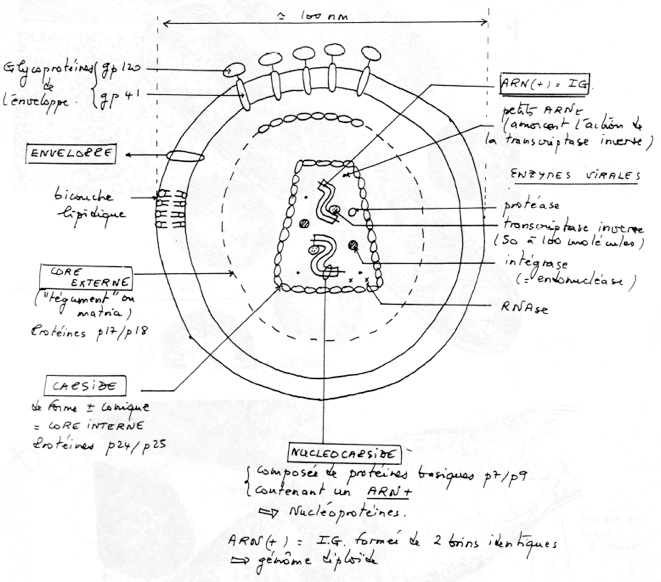 ≃ 100 nm
Glycoprotéines { gp 120
de
l'enveloppe. { gp 41
ENVELOPPE
bicouche
lipidique
CORE
EXTERNE
("tégument" ou
matrice)
Protéines p17/p18
CAPSIDE
de forme ± conique
= CORE INTERNE
Protéines p24/p25
ARN(+) = I.G.
petits ARNt
(amorcent l'action de
la transcriptase inverse)
ENZYMES VIRALES
protéase
transcriptase inverse
(50 à 100 molécules)
intégrase
(= endonucléase)
RNAse
NUCLEOCAPSIDE
{ composée de protéines basiques p7/p9
{ contenant un ARN+
⇨ Nucléoprotéines.
ARN(+) = I.G. formée de 2 brins identiques
⇨ génôme diploïde